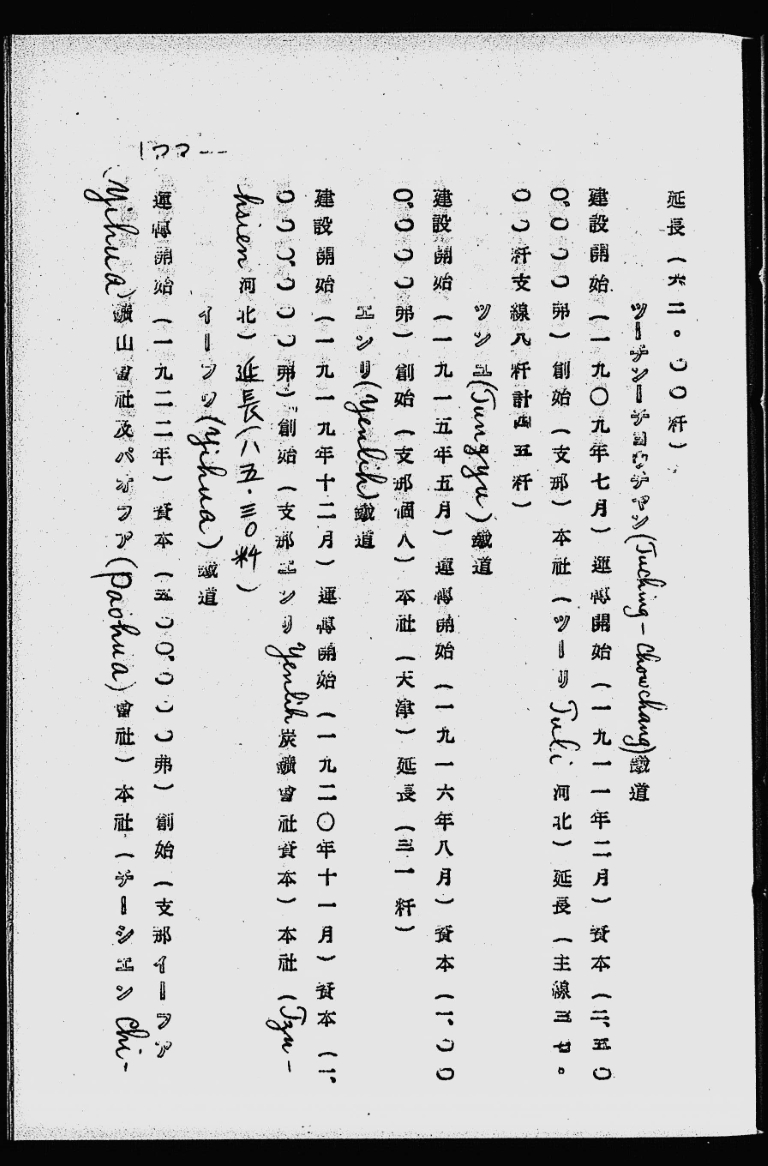 延長（六二。〇〇粁）
ツーチンーチヨウチヤン(Tuching-Chowchang)鐵道
建設開始（一九〇九年七月）運轉開始（一九一一年二月）資本（二、五〇
〇、〇〇〇弗）創始（支那）本社（ツーリ Tuli 河北）延長（主線三七。
〇〇粁支線八粁計四五粁）
ツンユ(Tungyu)鐵道
建設開始（一九一五年五月）運轉開始（一九一六年八月）資本（一、〇〇
〇、〇〇〇弗）創始（支那個人）本社（天津）延長（三一粁）
エンリ(Yenlih)鐵道
建設開始（一九一九年十二月）運轉開始（一九二〇年十一月）資本（一、
〇〇〇、〇〇〇弗）創始（支那エンリ Yenlih 炭鑛會社資本）本社（Tzu-
hsien 河北）延長（八五.三〇粁）
イーフワ(Yihua)鐵道
運轉開始（一九二二年）資本（五〇〇、〇〇〇弗）創始（支那イーフア
(Yihua)鑛山會社及パオフア(Paohua)會社）本社（チーシエン Chi-